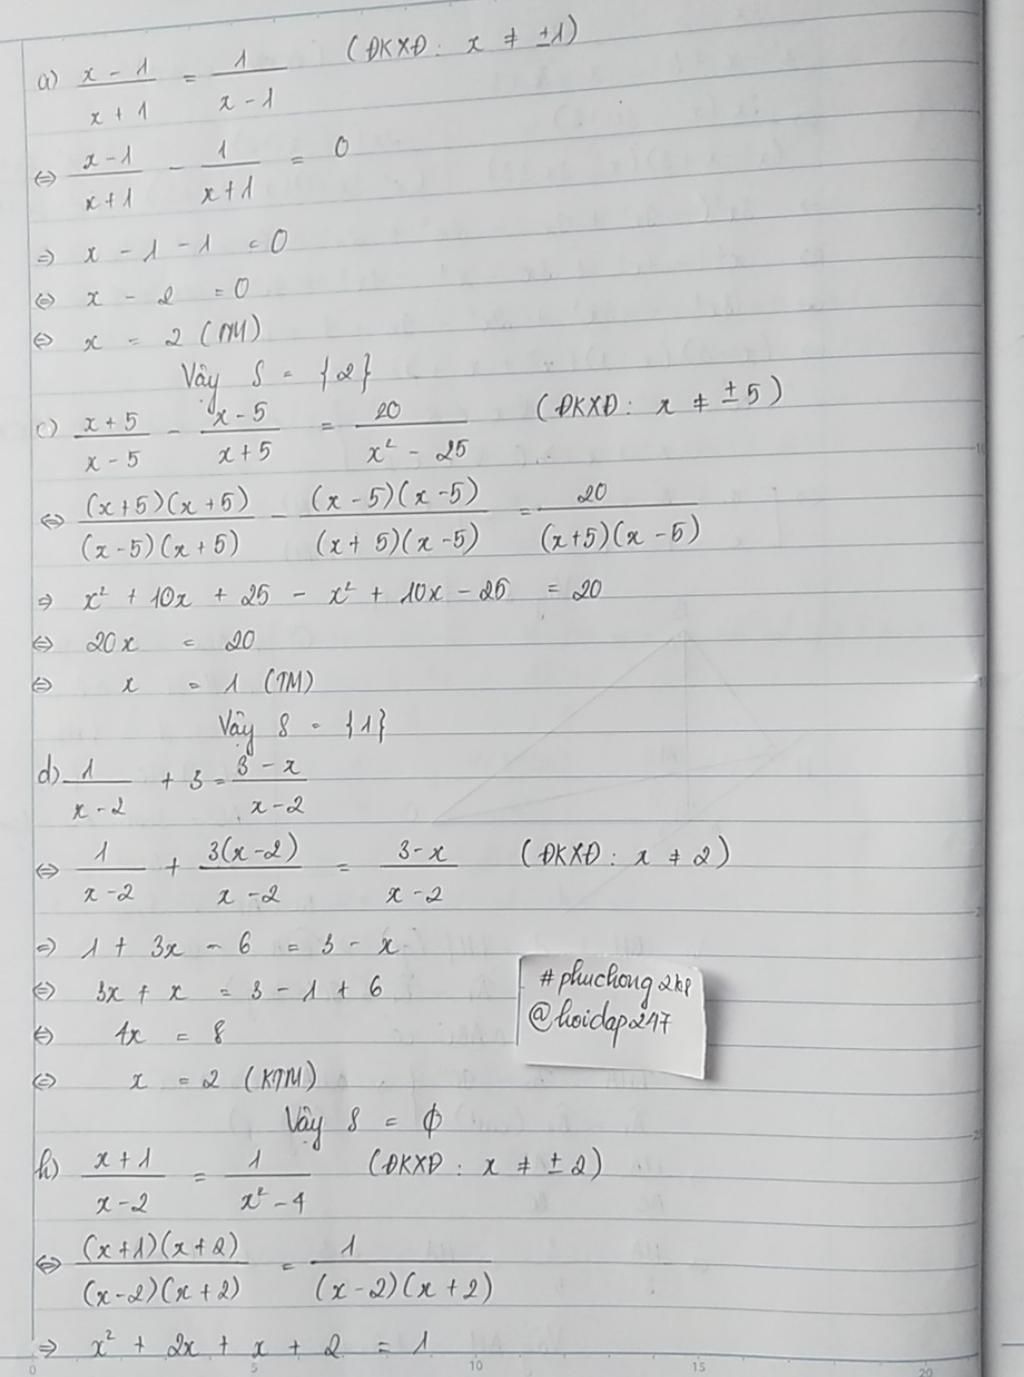 a) (x - 1)/(x + 1) = 1/(x - 1) (ĐKXĐ: x ≠ ±1)
⇔ (x - 1)/(x + 1) - 1/(x + 1) = 0
⇒ x - 1 - 1 = 0
⇔ x - 2 = 0
⇔ x = 2 (TM)
Vậy S = {2}
c) (x + 5)/(x - 5) - (x - 5)/(x + 5) = 20/(x² - 25) (ĐKXĐ: x ≠ ±5)
⇔ (x+5)(x+5)/(x-5)(x+5) - (x-5)(x-5)/(x+5)(x-5) = 20/(x+5)(x-5)
⇒ x² + 10x + 25 - x² + 10x - 25 = 20
⇔ 20x = 20
⇔ x = 1 (TM)
Vậy S = {1}
d) 1/(x - 2) + 3 = (3 - x)/(x - 2)
⇔ 1/(x - 2) + 3(x - 2)/(x - 2) = (3 - x)/(x - 2) (ĐKXĐ: x ≠ 2)
⇒ 1 + 3x - 6 = 3 - x
⇔ 3x + x = 3 - 1 + 6
⇔ 4x = 8
⇔ x = 2 (KTM)
Vậy S = ϕ
#phuchong2k8
@hoidap247
h) (x + 1)/(x - 2) = 1/(x² - 4) (ĐKXĐ: x ≠ ±2)
⇔ (x+1)(x+2)/(x-2)(x+2) = 1/(x-2)(x+2)
⇒ x² + 2x + x + 2 = 1
0 5 10 15 20